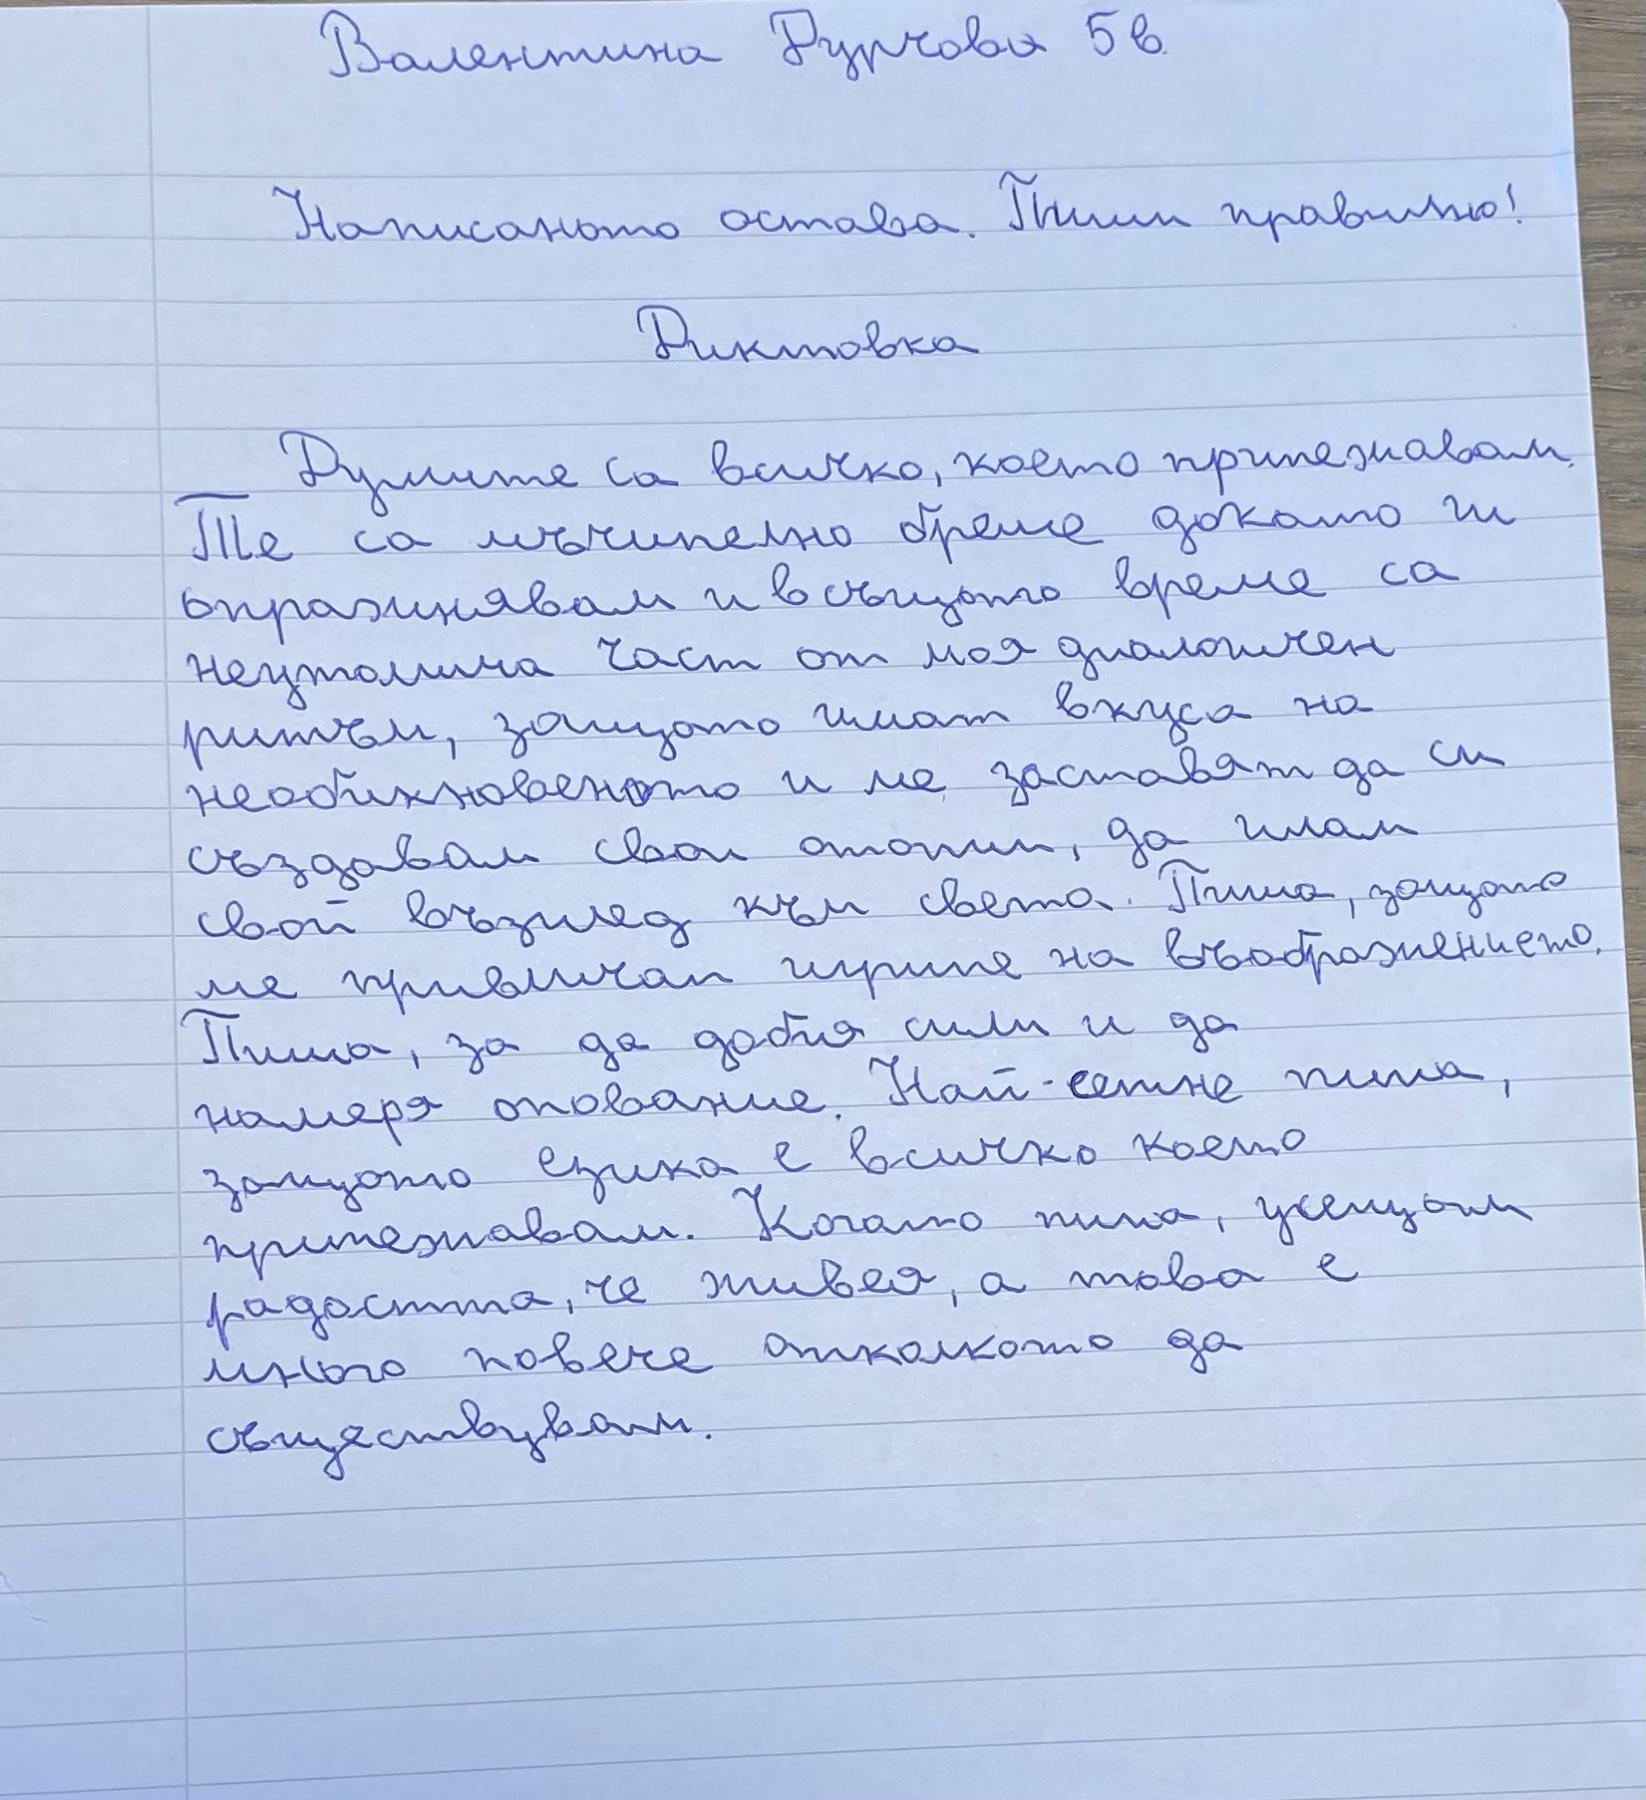 Валентина Дурчова 5в
Написаното остава. Пиши правилно!
Диктовка
Думите са всичко, което притежавам.
Те са мъчително бреме докато ги
опразнявам и в същото време са
неутолима част от моя диалогичен
ритъм, защото имат вкуса на
необикновеното и ме заставят да си
създавам свои отопии, да имам
свой възглед към света. Пиша, защото
ме привличат игрите на въображението.
Пиша, за да добия сили и да
намеря опование. Най-сетне пиша,
защото езика е всичко което
притежавам. Когато пиша, усещам
радостта, че живея, а това е
много повече отколкото да
съществувам.